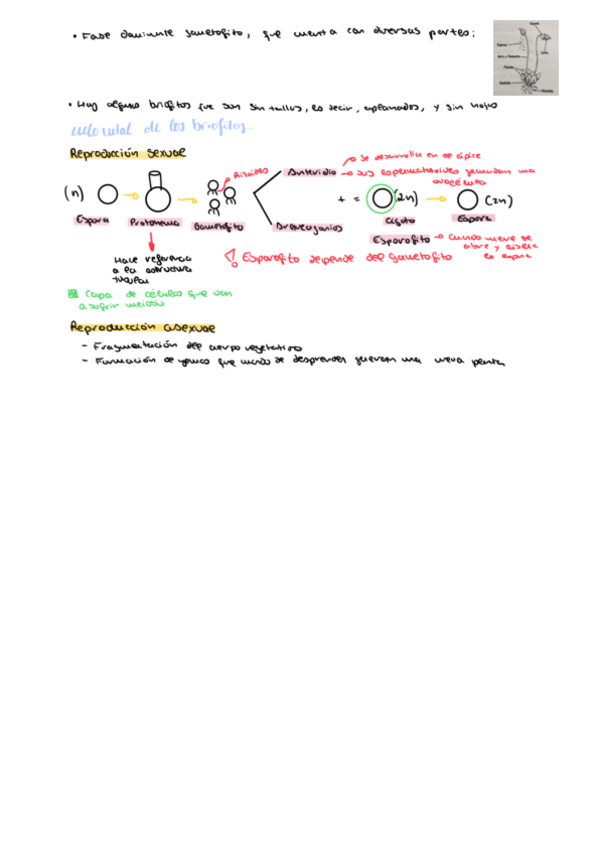 • Fase dominante gametofito, que cuenta con diversas partes:
• Hay algunos briofitos que son sin tallos, es decir, aplanados, y sin hojas
ciclo vital de los briofitos
Reproducción sexual
Se desarrolla en el ápice
Rizoides
Anteridio → sus espermatozoides fecundan una
ovocélula
(n)
+ =
(2n)
(2n)
Espora
Protonema
Gametofito
Arquegonios
Cigoto
Espora
Esporofito → Cuando muere se
abre y libera
la espora
Hace referencia
a la estructura
! Esporofito depende del gametofito
Capa de células que van
a sufrir meiosis
Reproducción asexual
- Fragmentación del cuerpo vegetativo
- Formación de yemas que cuando se desprenden generan una nueva planta